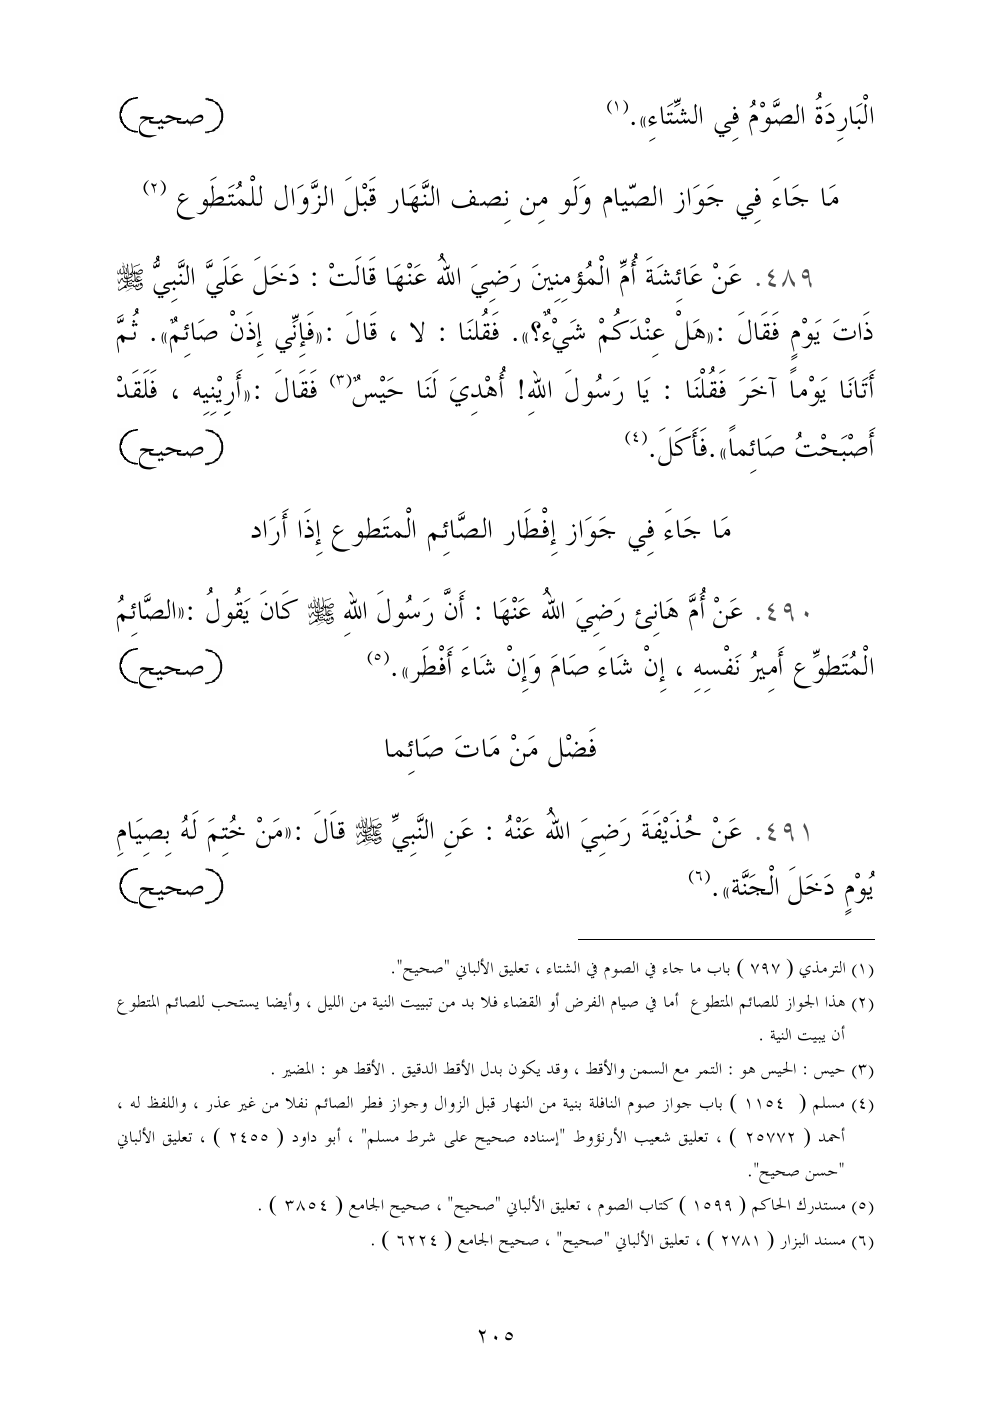 الْبَارِدَةُ الصَّوْمُ فِي الشِّتَاءِ».(١) (صحيح)
مَا جَاءَ فِي جَوَاز الصّيام وَلَو مِن نِصف النَّهَار قَبْلَ الزَّوَال للْمُتَطَوع (٢)
٤٨٩. عَنْ عَائِشَةَ أُمِّ الْمُؤمِنِينَ رَضِيَ اللهُ عَنْهَا قَالَتْ : دَخَلَ عَلَيَّ النَّبِيُّ ﷺ
ذَاتَ يَوْمٍ فَقَالَ :«هَلْ عِنْدَكُمْ شَيْءٌ؟». فَقُلنَا : لا ، قَالَ :«فَإِنِّي إِذَنْ صَائِمٌ». ثُمَّ
أَتَانَا يَوْماً آخَرَ فَقُلْنَا : يَا رَسُولَ اللهِ! أُهْدِيَ لَنَا حَيْسٌ(٣) فَقَالَ :«أَرِيْنِيِه ، فَلَقَدْ
أَصْبَحْتُ صَائِماً».فَأَكَلَ.(٤) (صحيح)
مَا جَاءَ فِي جَوَاز إِفْطَار الصَّائِم الْمتَطوع إِذَا أَرَاد
٤٩٠. عَنْ أُمَّ هَانِئ رَضِيَ اللهُ عَنْهَا : أَنَّ رَسُولَ اللهِ ﷺ كَانَ يَقُولُ :«الصَّائِمُ
الْمُتَطوِّع أَمِيرُ نَفْسِهِ ، إِنْ شَاءَ صَامَ وَإِنْ شَاءَ أَفْطَر».(٥) (صحيح)
فَضْل مَنْ مَاتَ صَائِما
٤٩١. عَنْ حُذَيْفَةَ رَضِيَ اللهُ عَنْهُ : عَنِ النَّبِيِّ ﷺ قاَلَ :«مَنْ خُتِمَ لَهُ بِصِيَامِ
يُوْمٍ دَخَلَ الْجَنَّة».(٦) (صحيح)
(١) الترمذي ( ٧٩٧ ) باب ما جاء في الصوم في الشتاء ، تعليق الألباني "صحيح".
(٢) هذا الجواز للصائم المتطوع أما في صيام الفرض أو القضاء فلا بد من تبييت النية من الليل ، وأيضا يستحب للصائم المتطوع
أن يبيت النية .
(٣) حيس : الحيس هو : التمر مع السمن والأقط ، وقد يكون بدل الأقط الدقيق . الأقط هو : المضير .
(٤) مسلم ( ١١٥٤ ) باب جواز صوم النافلة بنية من النهار قبل الزوال وجواز فطر الصائم نفلا من غير عذر ، واللفظ له ،
أحمد ( ٢٥٧٧٢ ) ، تعليق شعيب الأرنؤوط "إسناده صحيح على شرط مسلم" ، أبو داود ( ٢٤٥٥ ) ، تعليق الألباني
"حسن صحيح".
(٥) مستدرك الحاكم ( ١٥٩٩ ) كتاب الصوم ، تعليق الألباني "صحيح" ، صحيح الجامع ( ٣٨٥٤ ) .
(٦) مسند البزار ( ٢٧٨١ ) ، تعليق الألباني "صحيح" ، صحيح الجامع ( ٦٢٢٤ ) .
٢٠٥